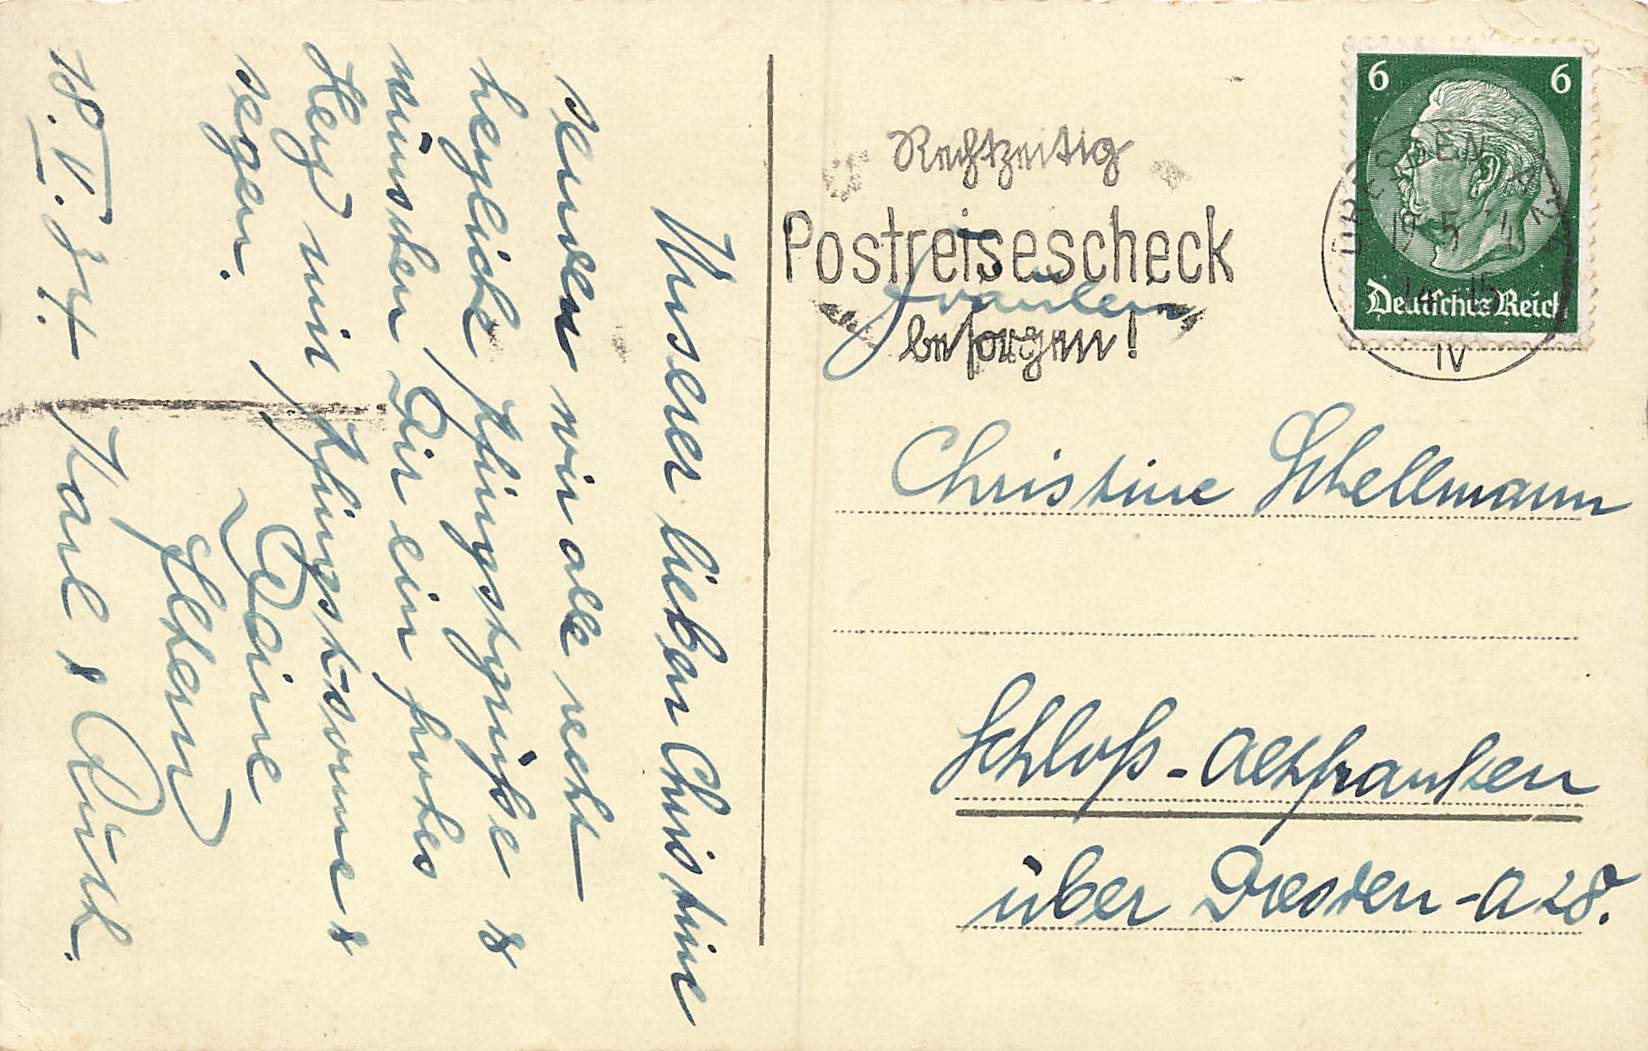 Unserer lieben Christine
senden wir alle recht
herzliche Pfingstgrüße &
wünschen Dir ein frohes
Herz mit Pfingstsonne &
segen.
Deine
Eltern
18.V.34. Karl & Ruth.
Rechtzeitig
Postreisescheck
besorgen!
6 6
Deutsches Reich
DRESDEN A24
19 5 4
15
IV
Fräulein
Christine Schellmann
Schloß-Altfranken
über Dresden-A 28.